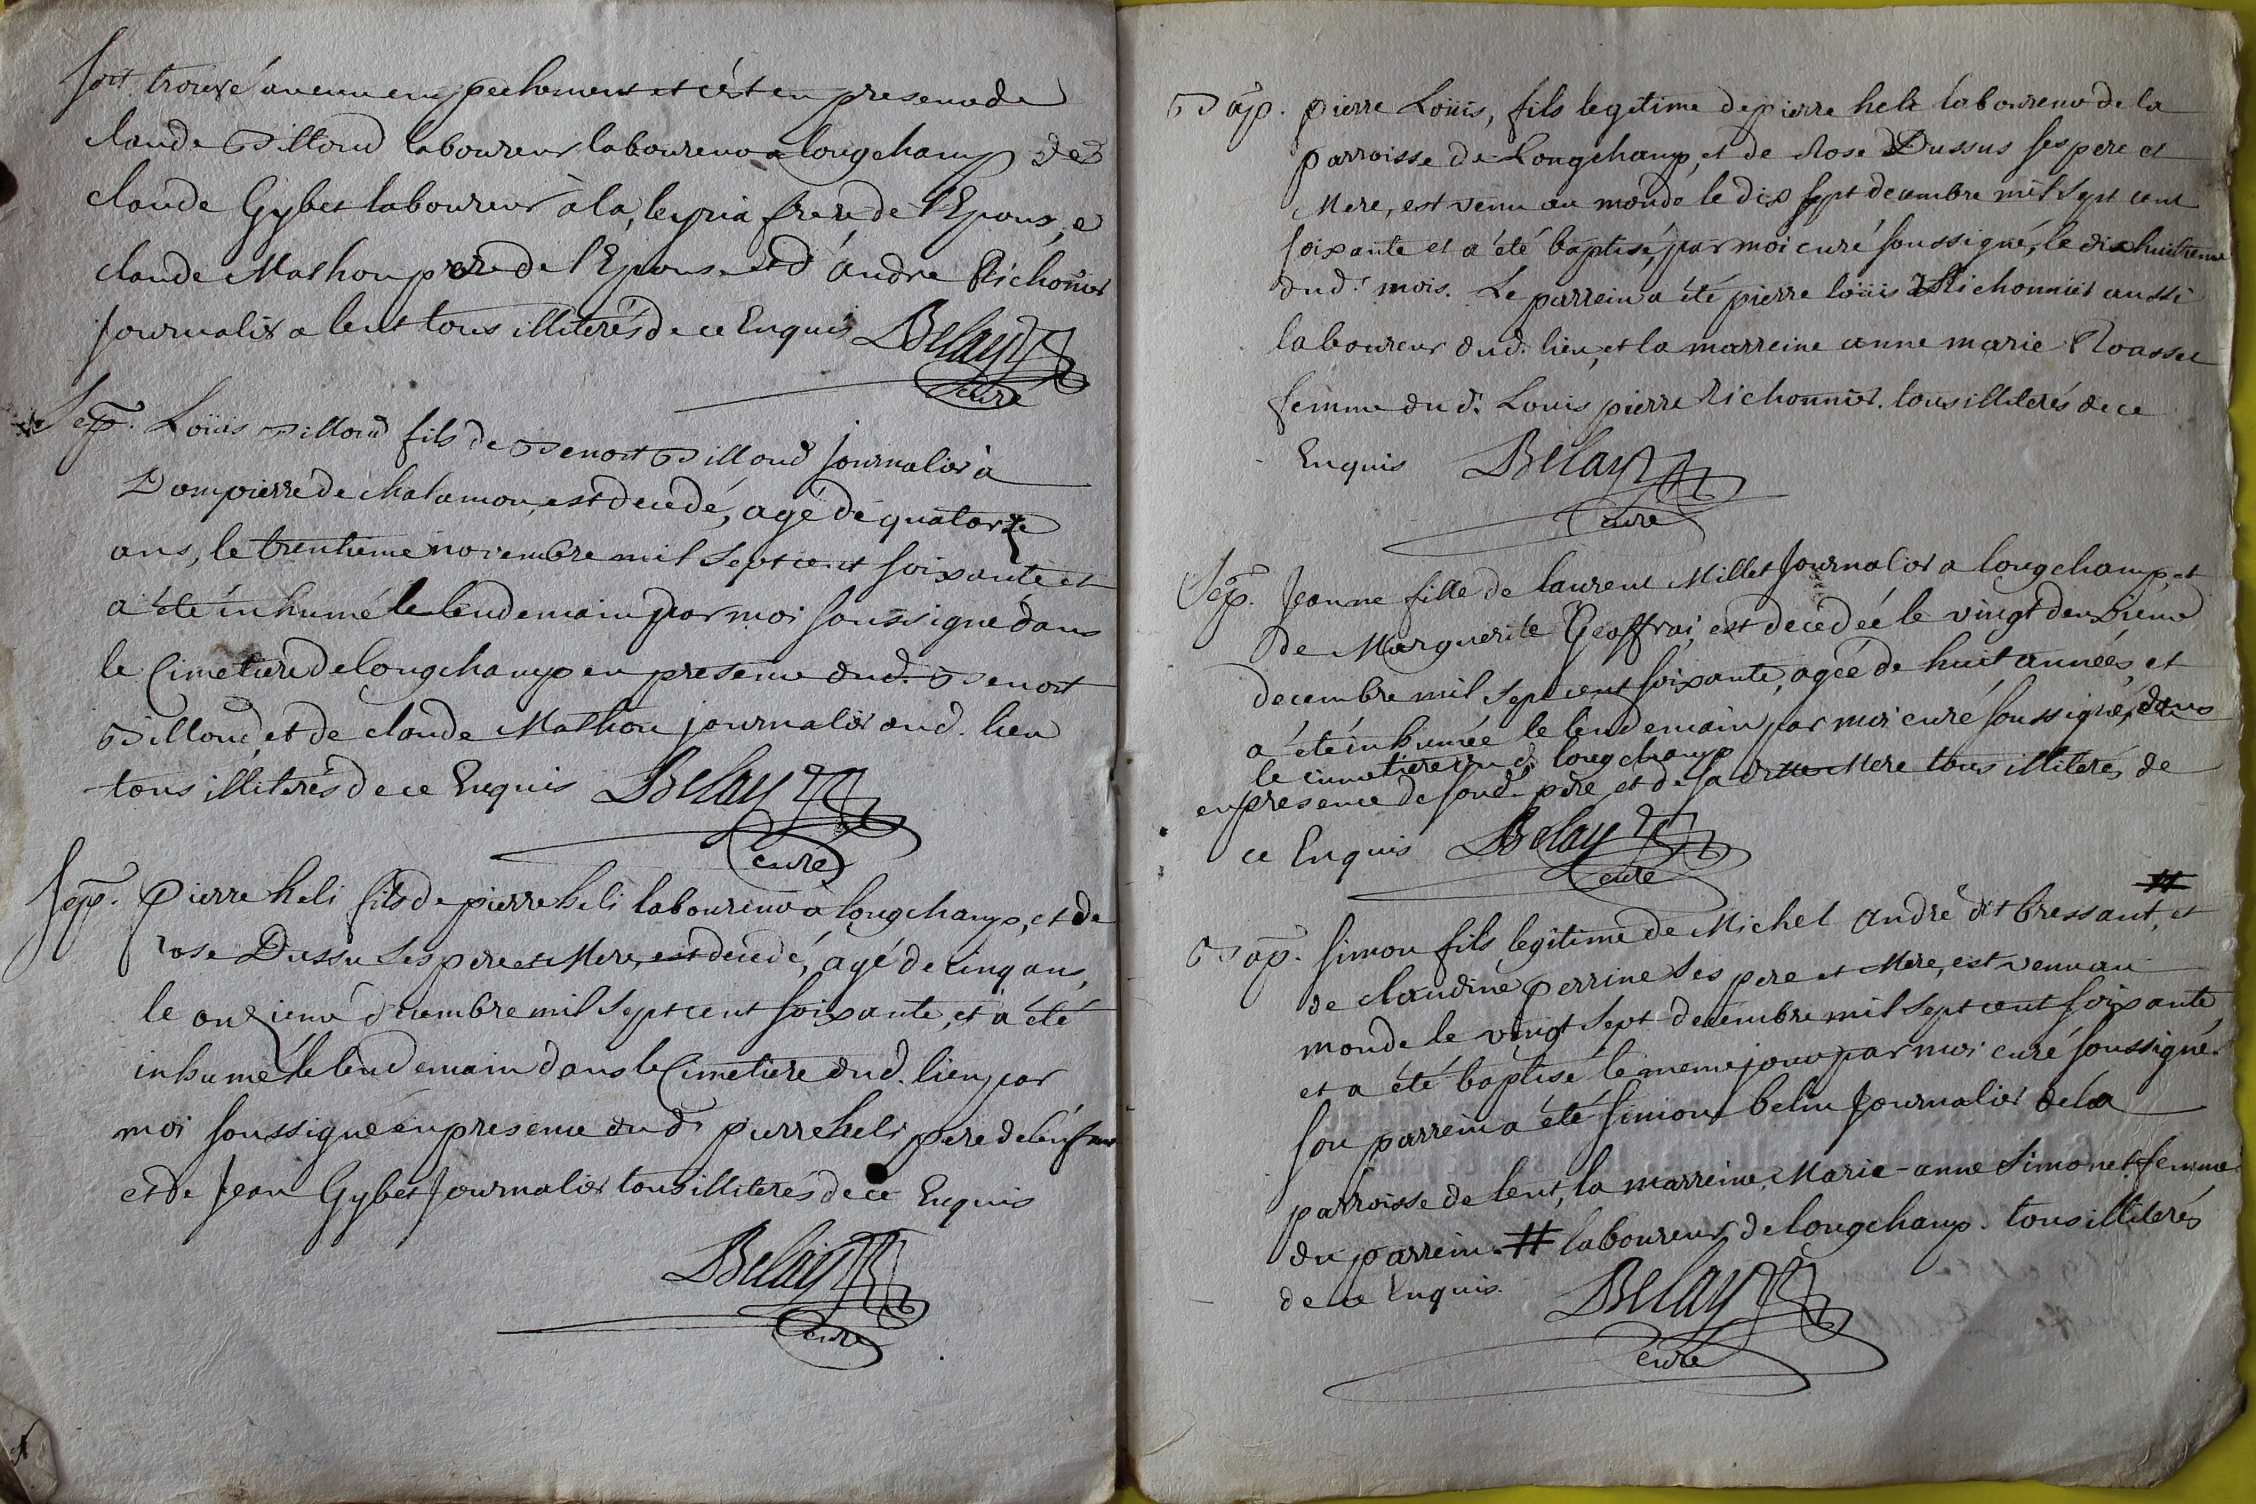 soit trouvé aucun empechement et c'est en presence de
claude Billoud laboureur laboureur a longchamp de
claude Gybet laboureur à la leyria frere de l'Epoux, e
claude Mathon pere de l'Epouse et d'andre Richonnier
Journalier a lent tous illiterés de ce Enquis Belay
curé
Sep. Loüis Billoud fils de Benoit Billoud Journalier à
Dompierre de chalamon, est decedé, agé de quatorze
ans, le trentieme novembre mil sept cent soixante et
a été inhumé le lendemain par moi soussigné dans
le Cimetiere de longchamp en presence dud. Benoit
Billoud, et de claude Mathon journalier dud. lieu
tous illiterés de ce Enquis Belay
curé
Sep. Pierre heli fils de pierre heli laboureur a longchamp, et de
rose Dussu ses pere et Mere, est decedé, agé de cinq ans,
le onzieme decembre mil sept cent soixante, et a été
inhumé le lendemain dans le Cimetiere dud. lieu, par
moi soussigné en presence dud. pierre heli pere de l'enfant
et de Jean Gybet Journalier tous illiterés de ce Enquis
Belay
curé
Bap. pierre Loüis, fils legitime de pierre heli laboureur de la
parroisse de Longchamp, et de Rose Dussus ses pere et
Mere, est venu au monde le dix sept decembre mil sept cent
soixante et a été baptisé, par moi curé soussigné, le dix huitieme
dud. mois. Le parrein a été pierre loüis Richonnier aussi
laboureur dud. lieu, et la marreine anne marie Roasset
femme dud. Louis pierre Richonnier. tous illiterés de ce
Enquis Belay
curé
Sep. Jeanne fille de laurent Millet Journalier a longchamp, et
de Marguerite Geoffrai, est decedée le vingt deuxieme
decembre mil sept cent soixante, agée de huit années, et
a été inhumée le lendemain par moi curé soussigné, dans
le cimetiere dud. longchamp
en presence de soud. pere et de sad. Mere tous illiterés de
ce Enquis Belay
curé
#
Bap. simon fils legitime de Michel andré dit bressant, et
de claudine perrine ses pere et Mere, est venu au
monde le vingt sept decembre mil sept cent soixante
et a été baptisé le meme jour par moi curé soussigné.
son parrein a été simon belin Journalier de la
parroisse de lent, la marreine Marie-anne Simonet femme
du parrein. # laboureur de longchamp. tous illiterés
de ce Enquis. Belay
curé